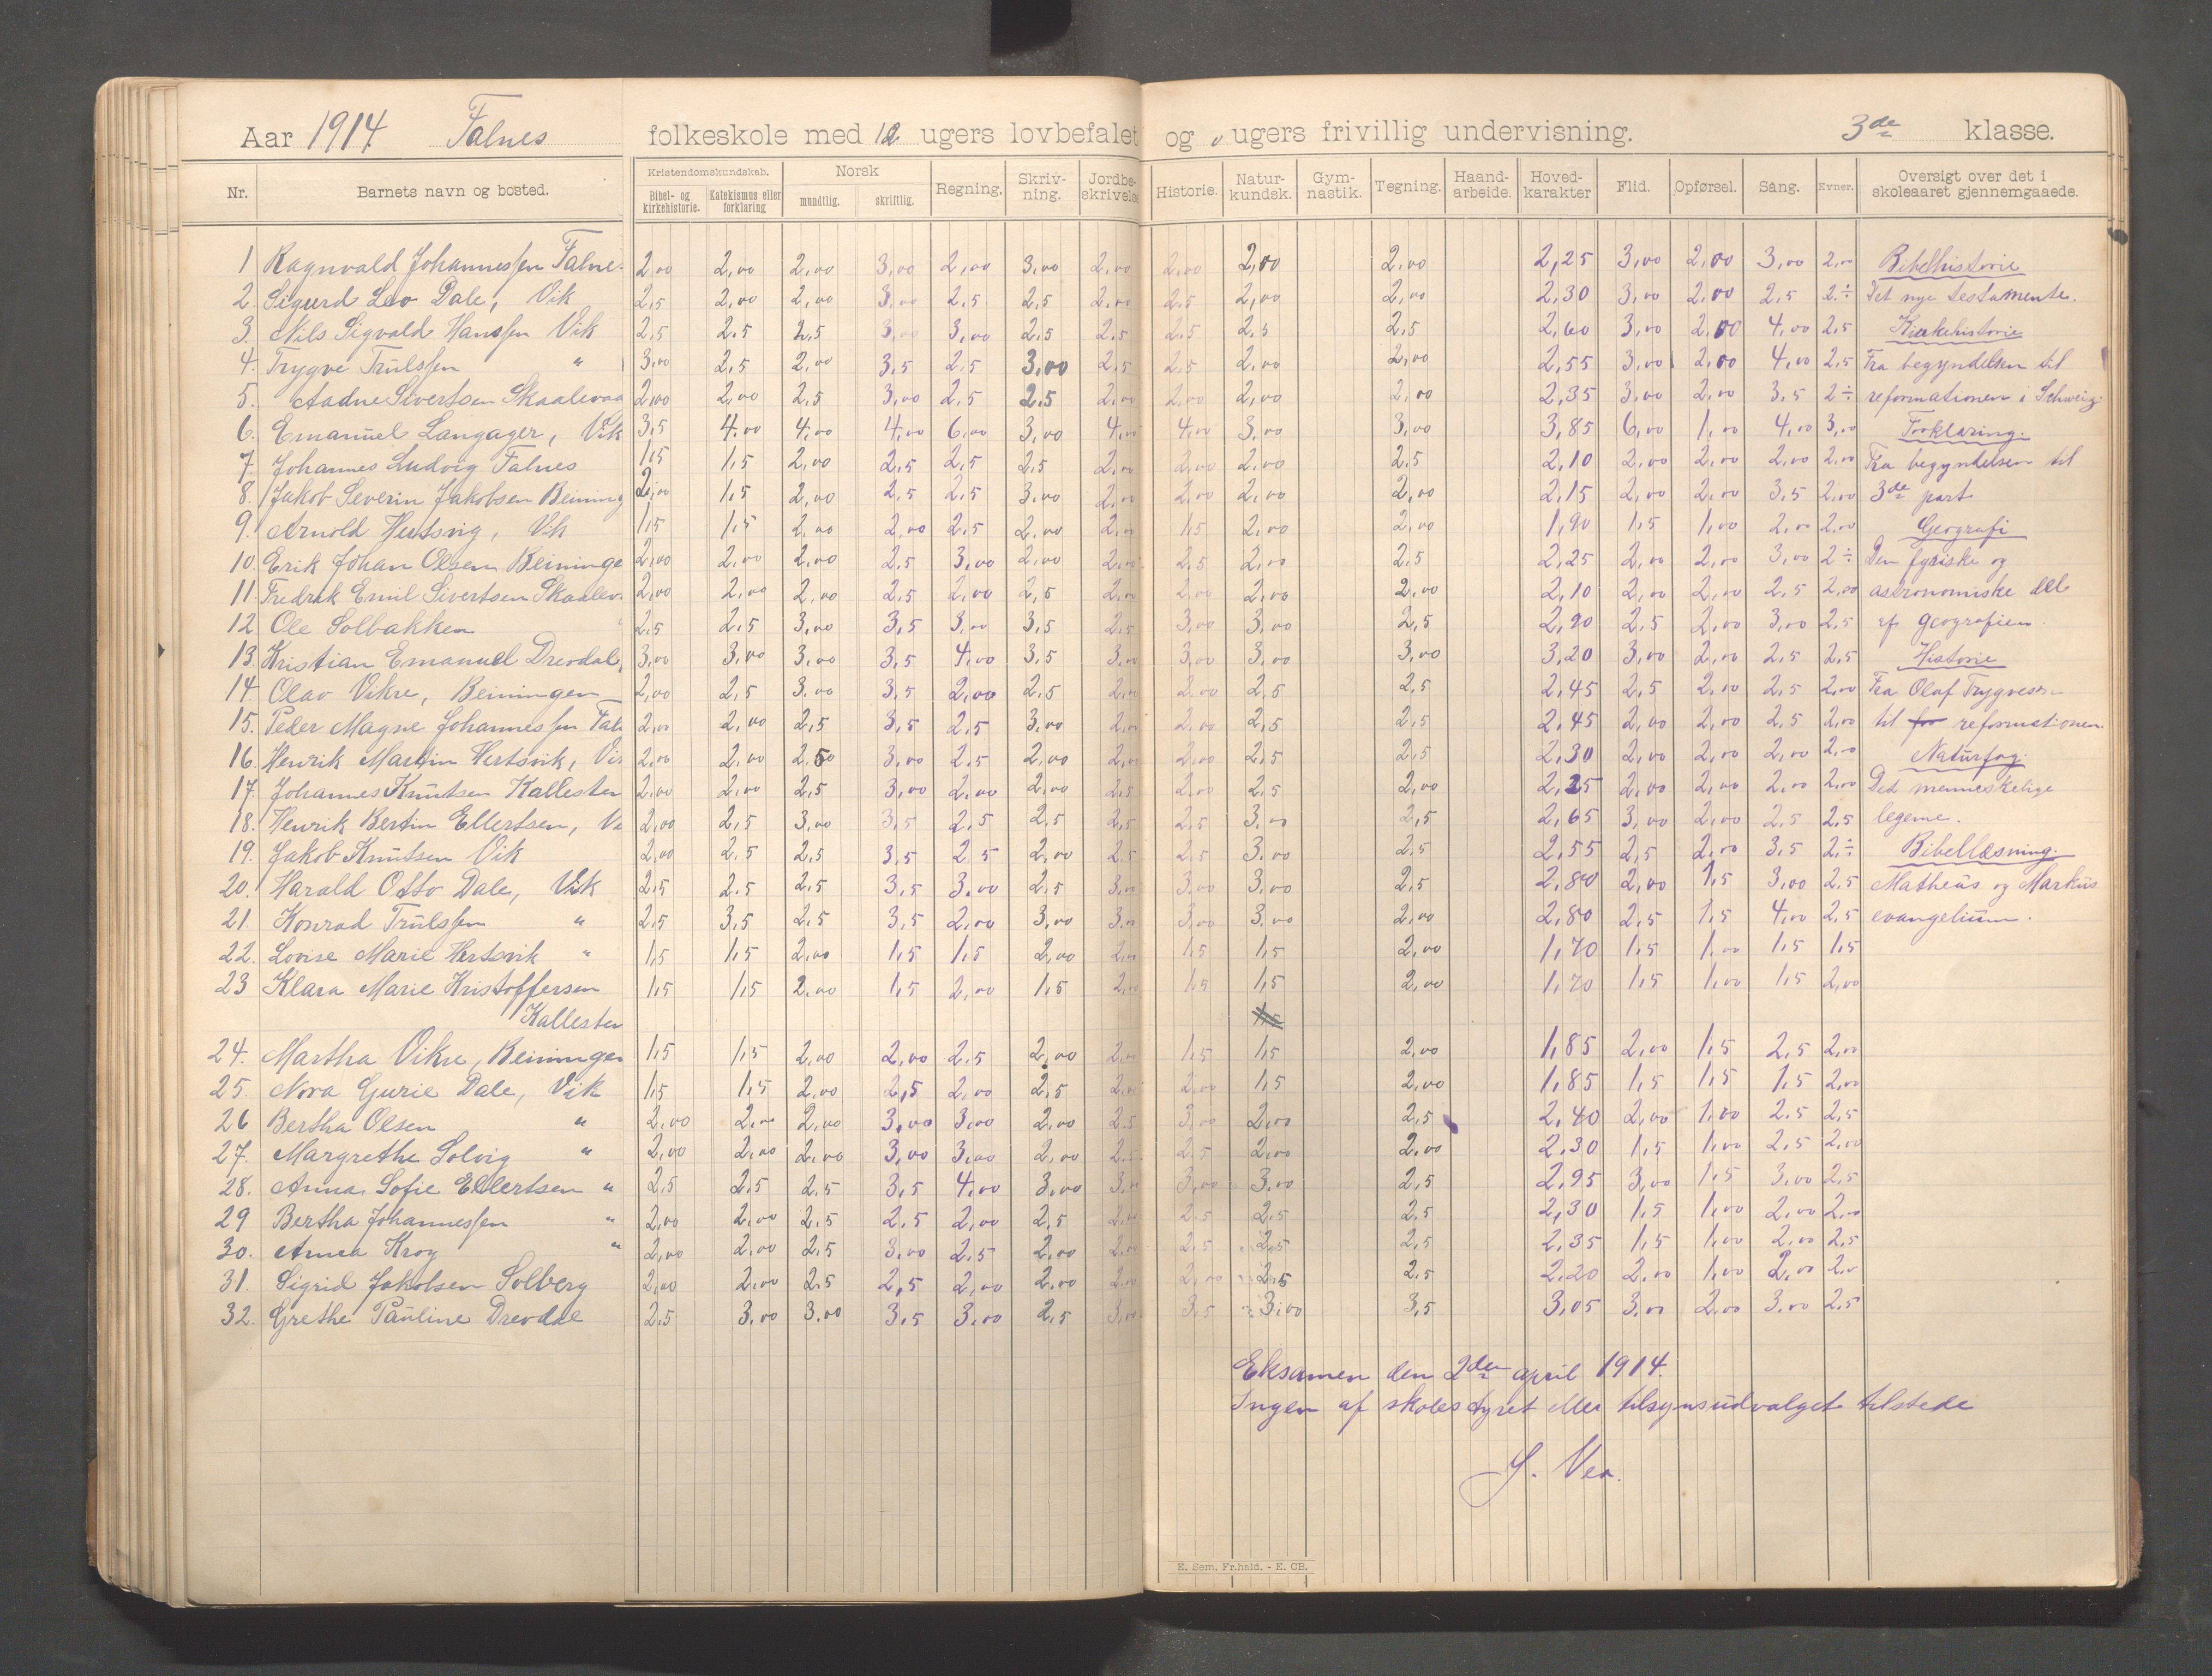 Aar 1914 Falnes folkeskole med 12 ugers lovbefalet og 0 ugers frivillig undervisning. 3de klasse.
Nr. Barnets navn og bosted. Kristendomskundskab. Bibel- og kirkehistorie. Katekismus eller forklaring Norsk mundtlig. skriftlig. Regning. Skriv-ning. Jordbe-skrivelse Historie. Natur-kundsk. Gym-nastik. Tegning. Haand-arbeide. Hoved-karakter Flid. Opførsel. Sång. Evner. Oversigt over det i skoleaaret gjennemgaaede.
1 Ragnvald Johannessen Falne 2,00 2,00 2,00 3,00 2,00 3,00 2,00 2,00 2,00 2,00 2,25 3,00 2,00 3,00 2,00 Bibelhistorie
2. Sigurd Leo Dale, Vik 2,5 2,00 2,00 3,00 2,5 2,5 2,00 2,5 2,00 2,00 2,30 3,00 2,00 2,5 2÷ Det nye testamente.
3. Nils Sigvald Hanssen Vik 2,5 2,5 2,5 3,00 3,00 2,5 2,5 2,5 2,5 2,5 2,60 3,00 2,00 4,00 2,5 Kirkehistorie
4. Trygve Trulssen " 3,00 2,5 2,00 3,5 2,5 3,00 2,5 2,5 2,00 2,00 2,55 3,00 2,00 4,00 2,5 Fra begyndelsen til
5. Aadne Sivertsen Skaalevaa 2,00 2,00 2,5 3,00 2,5 2,5 2,00 2,00 2,00 2,00 2,35 3,00 2,00 3,5 2÷ reformationen i Schweiz.
6. Emanuel Langager, Vik 3,5 4,00 4,00 4,00 6,00 3,00 4,00 4,00 3,00 3,00 3,85 6,00 1,00 4,00 3,00 Forklaring.
7. Johannes Ludvig Falnes 1,5 1,5 2,00 2,5 2,5 2,5 2,00 2,00 2,00 2,5 2,10 2,00 2,00 2,00 2,00 Fra begyndelsen til
8. Jakob Severin Jakobsen Beining 2,00 1,5 2,00 2,5 2,5 3,00 2,00 2,00 2,00 2,00 2,15 2,00 2,00 3,5 2,00 3de part
9. Arnold Hertsvig, Vik 1,5 1,5 2,00 2,00 2,5 2,00 2,00 1,5 2,00 2,00 1,90 1,5 1,00 2,00 2,00 Geografi
10. Erik Johan Olsen Beininge 2,00 2,00 2,00 2,5 3,00 2,00 2,00 2,5 2,00 2,5 2,25 2,00 2,00 3,00 2÷ Den fysiske og
11. Fredrik Emil Sivertsen Skaalev 2,00 2,00 2,00 2,5 2,00 2,5 2,00 2,00 2,00 2,00 2,10 2,00 2,00 2,5 2,00 astronomiske del
12 Ole Solbakken " 2,5 2,5 3,00 3,5 3,00 3,5 2,5 3,00 3,00 2,5 2,90 2,5 2,00 3,00 2,5 af geografien.
13. Kristian Emanuel Drevdal, 3,00 3,00 3,00 3,5 4,00 3,5 3,00 3,00 3,00 3,00 3,20 3,00 2,00 2,5 2,5 Historie
14. Olav Vikre, Beiningen 2,00 2,5 3,00 3,5 2,00 2,5 2,00 2,00 2,5 2,5 2,45 2,5 2,00 2,5 2,00 Fra Olaf Trygvesen
15. Peder Magne Johannessen Faln 2,00 2,00 2,5 3,5 2,5 3,00 2,00 2,00 2,5 2,5 2,45 2,00 2,00 2,5 2,00 til for reformationen.
16. Henrik Martin Hertsvik, Vi 2,00 2,00 2,50 3,00 2,5 2,00 2,00 2,00 2,5 2,5 2,30 2,00 2,00 2,00 2,00 Naturfag.
17. Johannes Knutsen Kallesten 2,00 2,00 2,5 3,00 2,00 2,00 2,5 2,00 2,5 2,00 2,25 2,00 2,00 2,00 2,00 Det menneskelige
18. Henrik Bertin Ellertsen, Vi 2,00 2,5 3,00 3,5 2,5 2,5 2,5 2,5 3,00 2,5 2,65 3,00 2,00 2,5 2,5 legeme.
19. Jakob Knutsen Vik 2,00 2,5 2,5 3,5 2,5 2,00 2,5 2,5 3,00 2,5 2,55 2,5 2,00 3,5 2÷ Bibellæsning.
20. Harald Otto Dale, Vik 2,5 2,5 2,5 3,5 3,00 2,5 3,00 3,00 3,00 2,5 2,80 2,00 1,5 3,00 2,5 Matheus og Markus
21. Konrad Trulssen " 2,5 3,5 2,5 3,5 2,00 3,00 3,00 3,00 3,00 2,00 2,80 2,5 1,5 4,00 2,5 evangelium.
22. Lovise Marie Hertsvik " 1,5 1,5 2,00 1,5 1,5 2,00 2,00 1,5 1,5 2,00 1,70 1,5 1,00 1,5 1,5
23 Klara Marie Kristoffersen 1,5 1,5 2,00 1,5 2,00 1,5 2,00 1,5 1,5 2,00 1,70 1,5 1,00 1,5 2,00
Kallesten
24. Martha Vikre, Beiningen 1,5 1,5 2,00 2,00 2,5 2,00 2,00 1,5 1,5 2,00 1,85 2,00 1,5 2,5 2,00
25. Nora Gurie Dale, Vik 1,5 1,5 2,00 2,5 2,00 2,5 2,00 2,00 1,5 2,00 1,85 1,5 1,5 1,5 2,00
26 Bertha Olsen " 2,00 2,00 2,00 3,00 3,00 2,00 2,5 3,00 2,00 2,5 2,40 2,00 1,00 2,5 2,5
27. Margrethe Solvig " 2,00 2,00 2,00 3,00 3,00 2,00 2,5 2,5 2,00 2,00 2,30 1,5 1,00 2,5 2,00
28. Anna Sofie Ellertsen " 2,5 2,5 2,5 3,5 4,00 3,00 3,00 3,00 3,00 2,5 2,95 3,00 1,5 3,00 2,5
29 Bertha Johannessen " 2,00 2,00 2,5 2,5 2,00 2,5 2,00 2,5 2,5 2,5 2,30 1,5 1,00 2,00 2,00
30. Anna Krog " 2,00 2,00 2,5 3,00 2,5 2,00 2,00 2,5 2,5 2,5 2,35 1,5 1,00 2,00 2,5
31. Sigrid Jakobsen Solberg 2,00 2,00 2,5 2,5 2,00 2,00 2,00 2,00 2,5 2,5 2,20 2,00 1,00 2,00 2,0
32. Grethe Pauline Drevdal 2,5 3,00 3,00 3,5 3,00 2,5 3,00 3,5 3,00 3,5 3,05 3,00 2,00 3,00 2,5
Eksamen den 2den april 1914.
Ingen af skolestyret eller tilsynsudvalget tilstede
S. Vea.
E. Sem, Fr.hald. - E. CB.